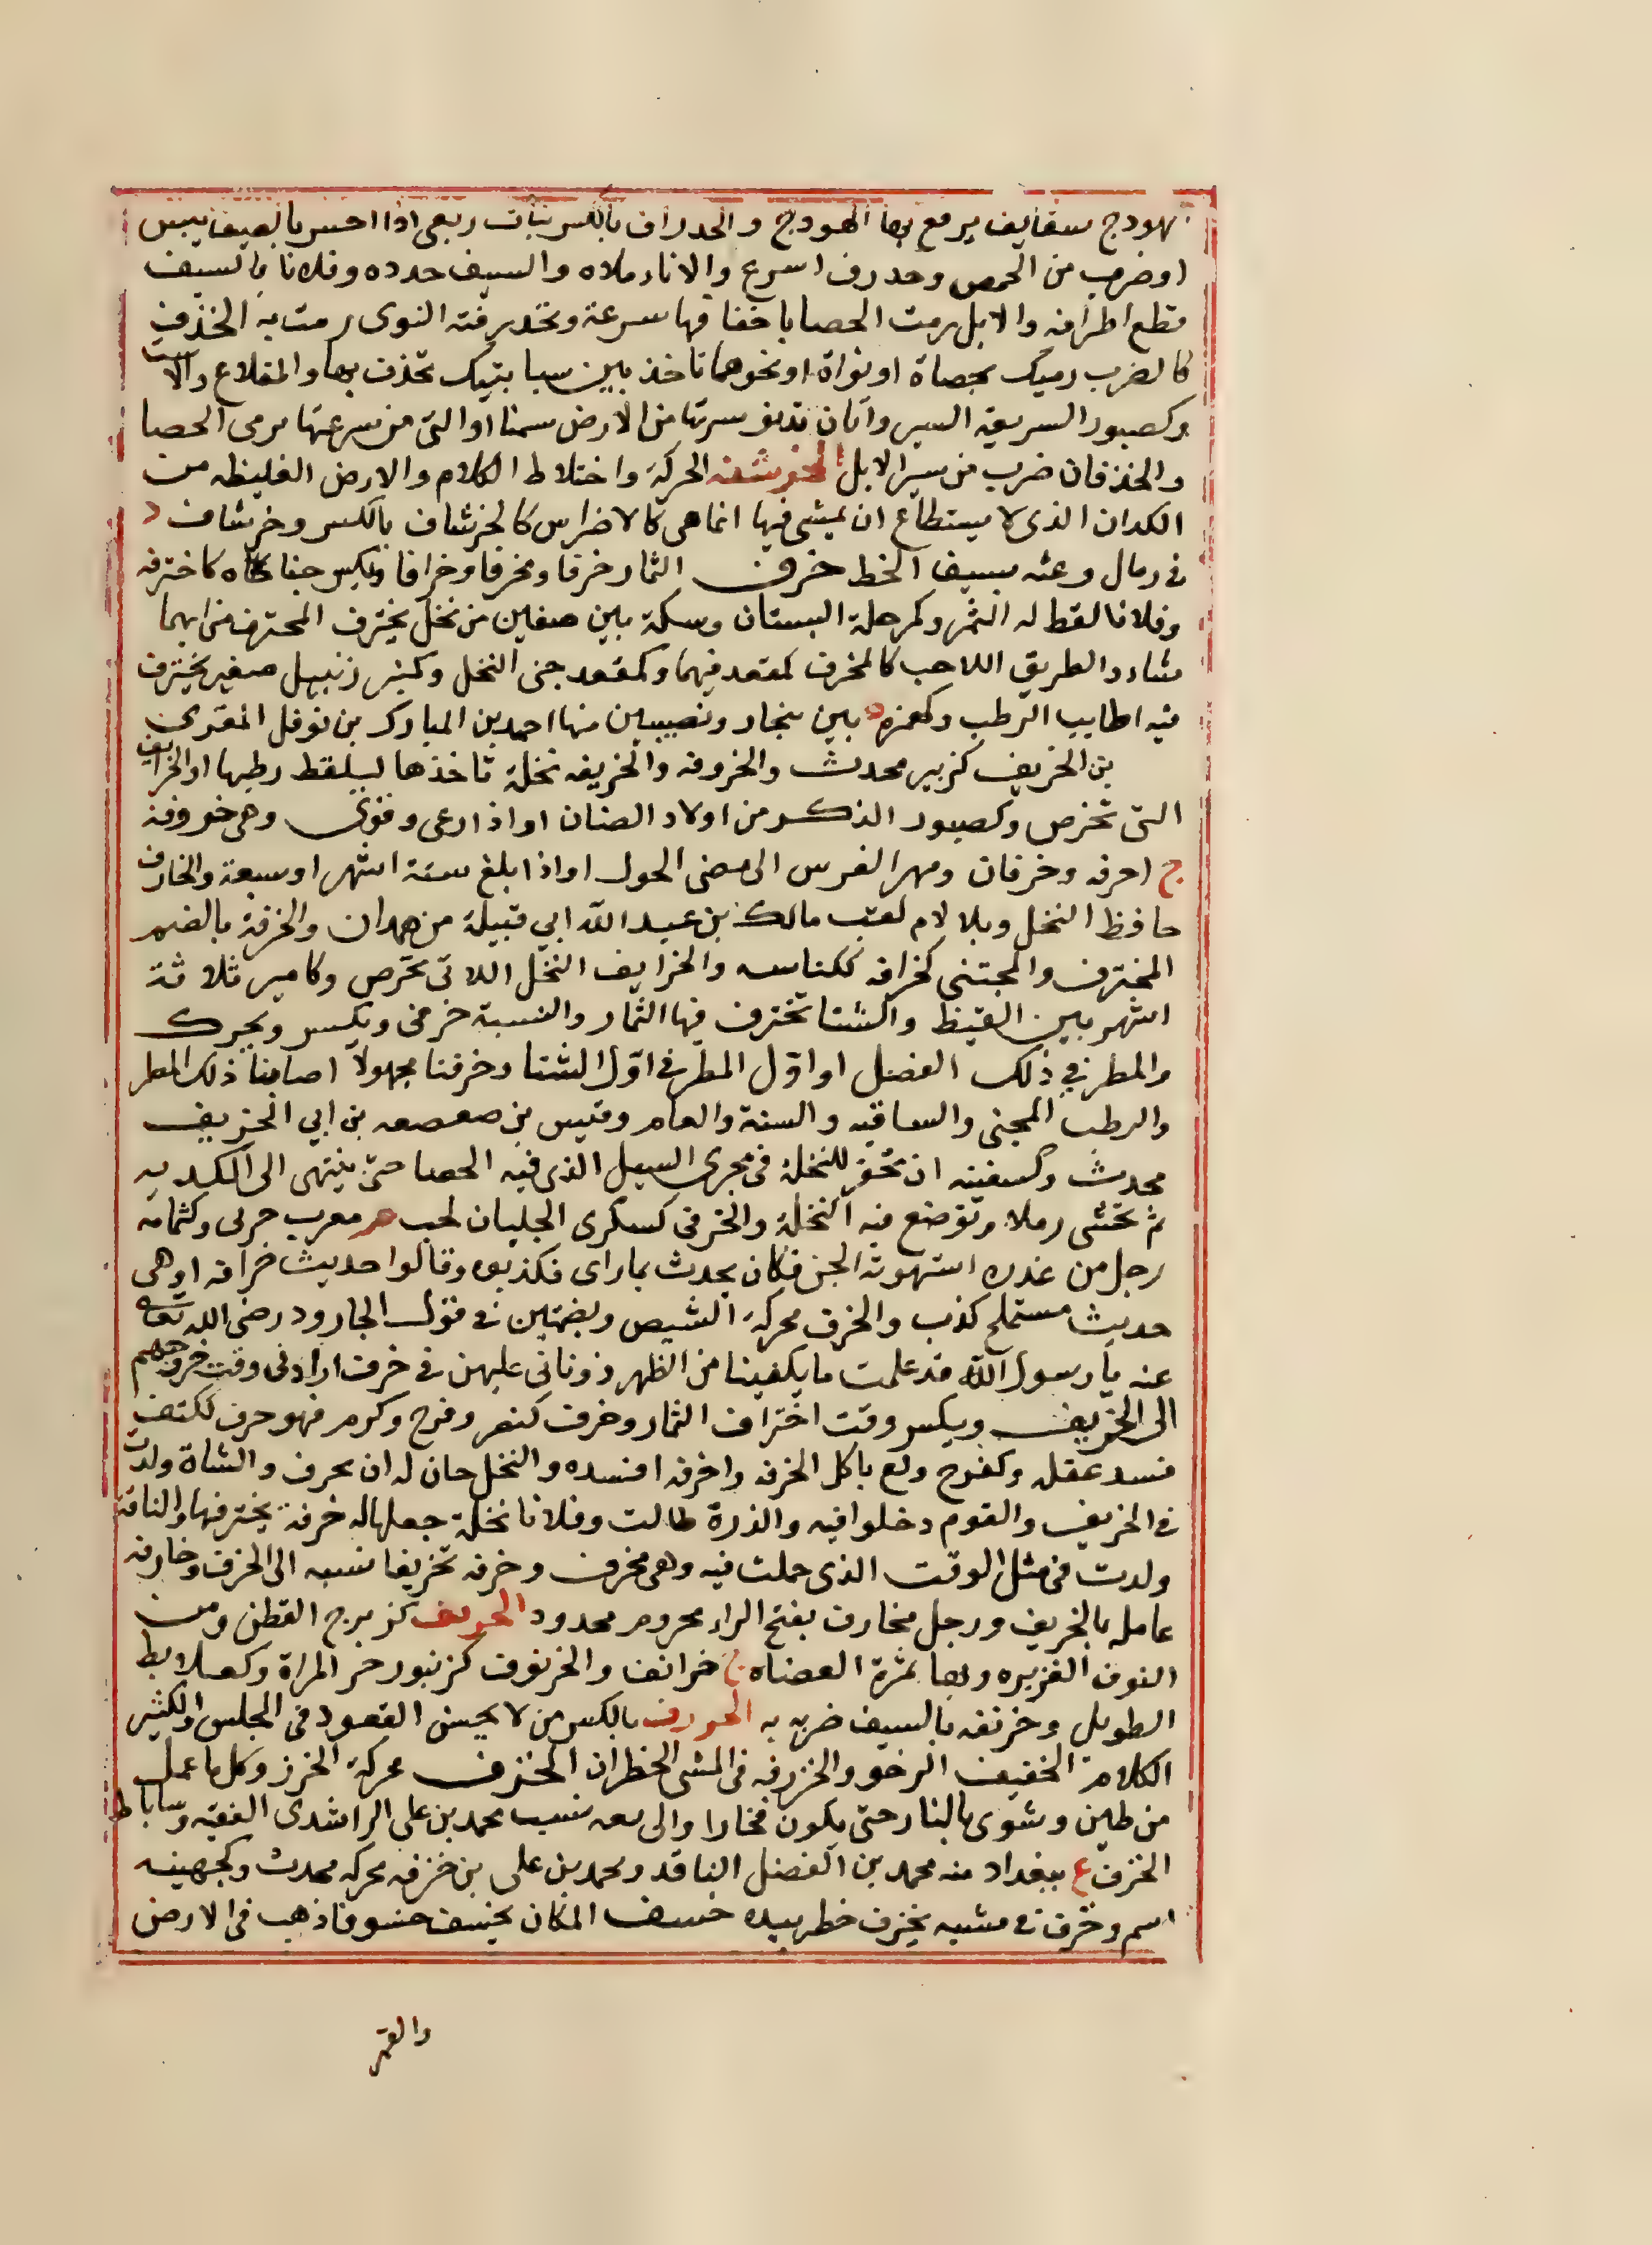 لهودج سقايف يرمع بها الهودج والخدراف بالكسر نبات ربعى اذا احس بالصيف يبس
او ضرب من الحمص وخدرف اسرع والاناء ملاه والسيف حدده وفلانا بالسيف
قطع اطرافه والابل رمت الحصا باخفافها سرعة وتخدرفته النوى رمت به الخذف
كالضرب رميك بحصاة او نواة او نحوهما تاخذ بين سبابتيك تخذف بها والمقلاع والاست
وكصبور السريعة السير واتان تدنو سرتها من الارض سمنا او التى من سرعتها ترمى الحصا
والخذفان ضرب من سير الابل الخرشفه الحركة واختلاط الكلام والارض الغليظه من
الكدان الذى لا يستطاع ان يمشى فيها انما هى كالاضراس كالخرشاف بالكسر وخرشاف د
فى رمال وعثه بسيف الخط خرف الثمار خرفا ومخرفا وخرافا ويكسر جناه كاخترفه
وفلانا لقط له الثمر وكمرحلة البستان وسكة بين صفين من نخل يخترف المخترف من ايهما
شاء والطريق اللاحب كالمخرف كمقعد فيهما وكمقعد جنى النخل وكمنبر زنبيل صغير يخترف
فيه اطايب الرطب وكهمزه ه بين سنجار ونصيبين منها احمد بن المبارك بن نوفل المقرى
بن الخريف كزبير محدث والخروفه والخريفه نخلة تاخذها ليلقط رطبها او الخرايف
التى تخرص وكصبور الذكر من اولاد الضان او اذا رعى وقوى وهى خروفة
ج اخرفه وخرفان ومهر الفرس الى مضى الحول او اذا بلغ ستة اشهر او سبعة والخارف
حافظ النخل وبلا لام لقب مالك بن عبد الله ابى قبيلة من همدان والخرفة بالضم
المخترف والمجتنى كخرافه ككناسه والخرايف النخل اللاتى تخرص وكامير ثلاثة
اشهر بين القيظ والشتا تخترف فيها الثمار والنسبة خرفى ويكسر ويحرك
والمطر فى ذلك الفصل او اوّل المطر فى اوّل الشتا وخرفنا مجهولا اصابنا ذلك المطر
والرطب المجنى والساقيه والسنة والعام وقيس بن صعصعه بن ابى الخريف
محدث وكسفينه ان تحفر للنخلة فى مجرى السيل الذى فيه الحصا حتى ينتهى الى الكديه
ثم تحشى رملا وتوضع فيه النخلة والخرفى كسكرى الجلبان لحب م معرب خربى وكثمامه
رجل من عذره استهوته الجن فكان يحدث بما راى فكذبوه وقالوا حديث خرافه او هى
حديث مستملح كذب والخرف محركة الشيص وبضمتين فى قول الجارود رضى الله تعالى
عنه يا رسول الله قد علمت ما يكفينا من الظهر ذو ناتى عليهن فى خرف اراد فى وقت خروجهم
الى الخريف ويكسر وقت اختراف الثمار وخرف كنصر وفرح وكرم فهو خرف ككتف
فسد عقله وكفرح ولع باكل الخرفه واخرفه افسده والنخل حان له ان يخرف والشاة ولدت
فى الخريف والقوم دخلوا فيه والذرة طالت وفلانا نخلة جعلها له خرفة يخترفها والناقة
ولدت فى مثل الوقت الذى حملت فيه وهى مخرف وخرفه تخريفا نسبه الى الخرف وخارفه
عامله بالخريف ورجل مخارف بفتح الراء محروم محدود الخرنف كزبرج القطن ومن
النوق الغزيره وبها ثمرة العضاه ج خرانف والخرنوف كزنبور حر المراة وكعلابط
الطويل وخرنفه بالسيف ضربه به الخزرف بالكسر من لا يحسن القعود فى المجلس والكثير
الكلام الخفيف الرخو والخزرفه فى المشى الخطران الخزف محركة الخرز وكل ما عمل
من طين وشوى بالنار حتى يكون فخارا والى بيعه نسب محمد بن على الراشدى الفقيه وساباط
الخزف ع ببغداد منه محمد بن الفضل الناقد ومحمد بن على بن خزفه محركه محدث وكجهينه
اسم وخزف فى مشيه يخزف خطر بيده خسف المكان يخسف خسوفا ذهب فى الارض
والقمر